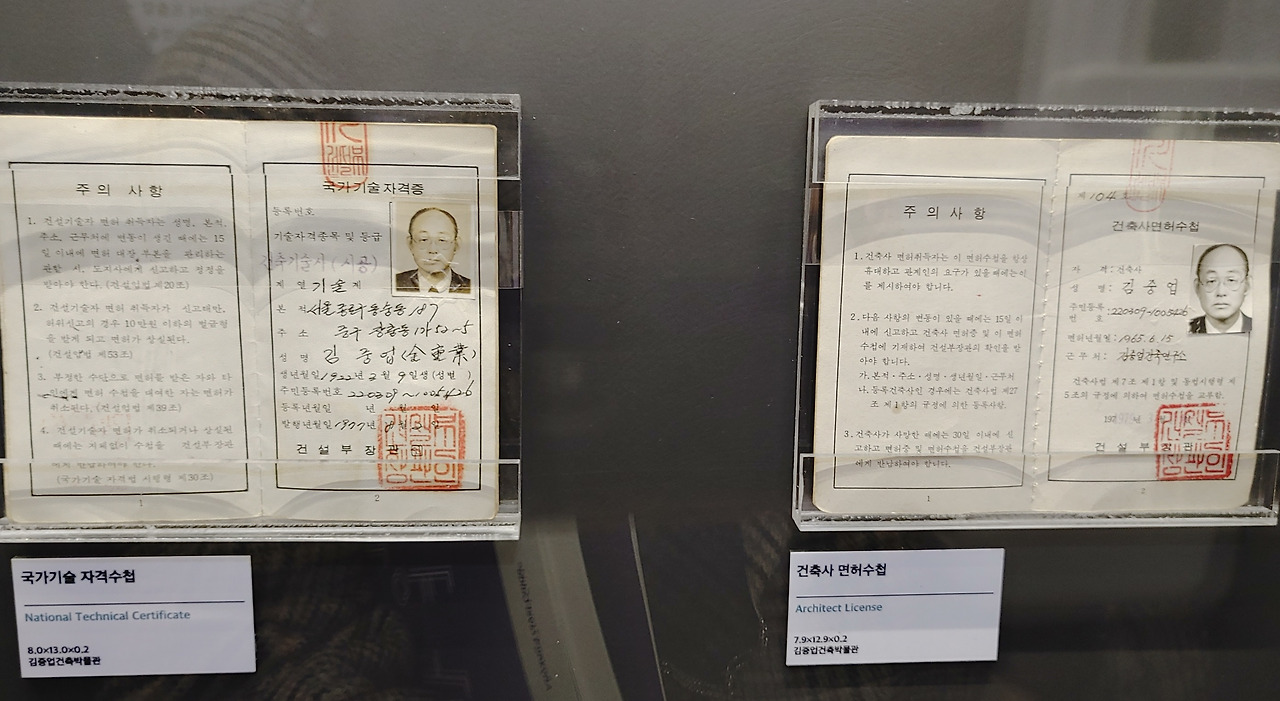 주 의 사 항
1. 건설기술자 면허 취득자는 성명, 본적,
주소, 근무처에 변동이 생긴 때에는 15
일 이내에 면허 대장 부본을 관리하는
관할 시, 도지사에게 신고하고 정정을
받아야 한다. (건설업법 제20조)
2. 건설기술자 면허 취득자가 신고태만,
허위신고의 경우 10만원 이하의 벌금형
을 받게 되고 면허가 상실된다.
(건설업법 제53조)
3. 부정한 수단으로 면허를 받은 자와 타
인에게 면허 수첩을 대여한 자는 면허가
취소된다. (건설업법 제39조)
4. 건설기술자 면허가 취소되거나 상실된
때에는 지체없이 수첩을 건설부장관
에게 반납하여야 한다.
(국가기술 자격법 시행령 제30조)
1
국가기술자격증
등록번호
기술자격종목 및 등급
건축기술사(시공)
본 적 서울 종로구 동숭동 187
주 소 중구 장충동
성 명 김 중 업 (金重業)
생년월일 1922년 3월 9일생 (성별 )
주민등록번호 220309~1005426
등록년월일 년 월 일
발행년월일 1977년
건 설 부 장 관
2
국가기술 자격수첩
National Technical Certificate
8.0×13.0×0.2
김중업건축박물관
주 의 사 항
1. 건축사 면허취득자는 이 면허수첩을 항상
휴대하고 관계인의 요구가 있을 때에는 이
를 제시하여야 합니다.
2. 다음 사항의 변동이 있을 때에는 15일 이
내에 신고하고 건축사 면허증 및 이 면허
수첩에 기재하여 건설부장관의 확인을 받
아야 합니다.
가. 본적·주소·성명·생년월일·근무처
나. 등록건축사인 경우에는 건축사법 제27
조 제1항의 규정에 의한 등록사항.
3. 건축사가 사망한 때에는 30일 이내에 신
고하고 면허증 및 면허수첩을 건설부장관
에게 반납하여야 합니다.
1
제 104 호
건축사면허수첩
자 격: 건축사
성 명: 김 중 업
주민등록
번 호: 220309-1005426
면허년월일: 1965. 6. 15
근 무 처: 김중업건축연구소
건축사법 제7조 제1항 및 동법시행령 제
5조의 규정에 의하여 면허수첩을 교부함.
건 설 부 장 관
2
건축사 면허수첩
Architect License
7.9×12.9×0.2
김중업건축박물관